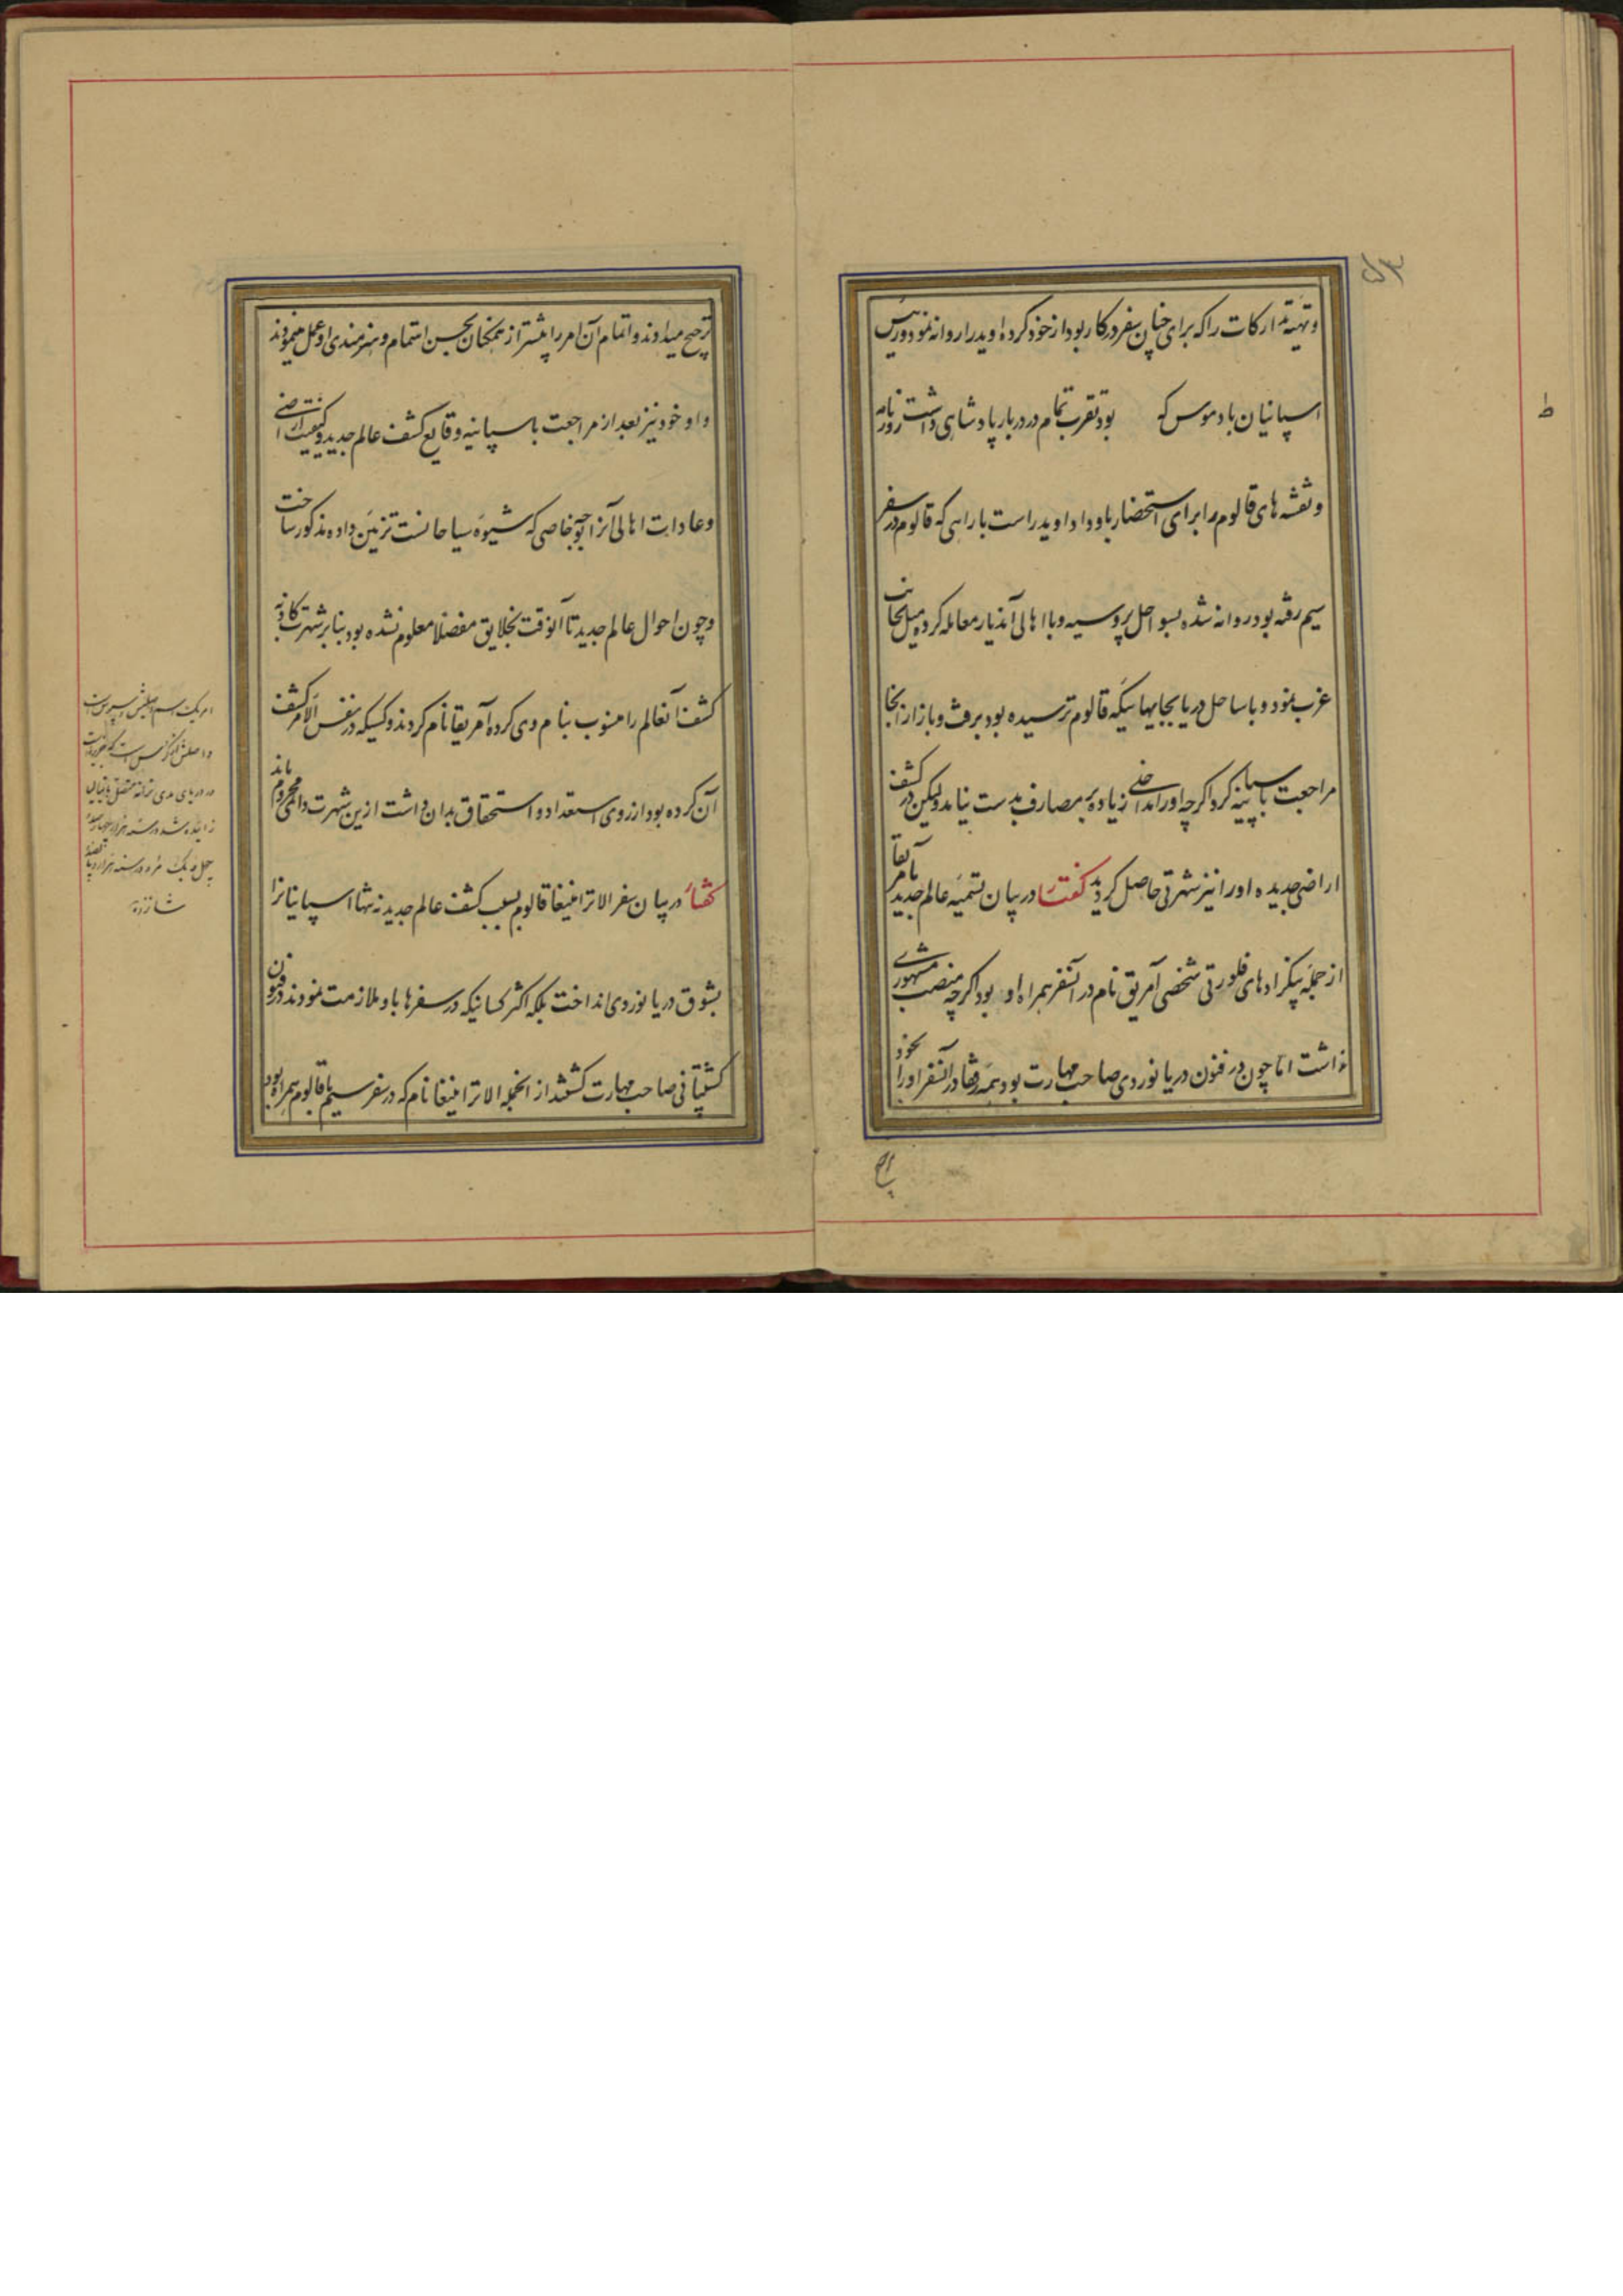 و تهیّه تدارکات را که برای چنان سفر در کار بود از خود کرده اوید را روانه نمود و رئیس
اسپانیان بادموس که بود تقرب تمام در دربار پادشاهی داشت روزنامه
و نقشه های قالوم را برای استحضار باو داد اوید راست با راهی که قالوم در سفر
سیم رفته بود روانه شده بسواحل پروسیه و با اهالی آندیار معامله کرده میل بجانب
غرب نمود و با ساحل دریا بجاییهائیکه قالوم نرسیده بود برفت و باز از آنجا
مراجعت باسپانیه کرد اگرچه او را مداخلی زیاده بر مصارف بدست نیامد ولیکن در کشف
اراضی جدیده او را نیز شهرتی حاصل گردید گفتار در بیان تسمیه عالم جدید بآمریقا
از جمله بیکزادهای فلورتی شخصی آمریق نام در آنسفر همراه او بود اگرچه منصب مشهوری
نداشت اما چون در فنون دریانوردی صاحب مهارت بود همه رفقا در آنسفر او را بخود
ترجیح میدادند و اتمام آن امر را پیشتر از همکنان بحسن اهتمام و هنرمندی او عمل مینمودند
و او خود نیز بعد از مراجعت باسپانیه وقایع کشف عالم جدید و کیفیت اراضی
و عادات اهالی آنرا بوجه خاصی که شیوه سیاحانست تزیین داده مذکور ساخت
و چون احوال عالم جدید تا آنوقت بخلایق مفصلا معلوم نشده بود بنا بر شهرت کاذبه
کشف آنعالم را منسوب بنام وی کرده آمریقا نام کردند و کسیکه در نفس الامر کشف
آن کرده بود از روی استعداد و استحقاق بدان داشت ازین شهرت دائمی محروم ماند
گفتار در بیان سفر الانزا فیغا قالوم بسبب کشف عالم جدید نه تنها اسپانیانرا
بشوق دریانوردی انداخت بلکه اکثر کسانیکه در سفرها باو ملازمت نمودند در فنون
کشتیبانی صاحب مهارت گشتند از آنجمله الانزا فیغا نام که در سفر سیم با قالوم همراه بود
امریک اسم
در دریای مدی ترانه متصل بایتالیا
زائیده شد در سنه هزار و چهارصد و
چهل و یک مرد در سنه هزار و پانصد و
شانزده